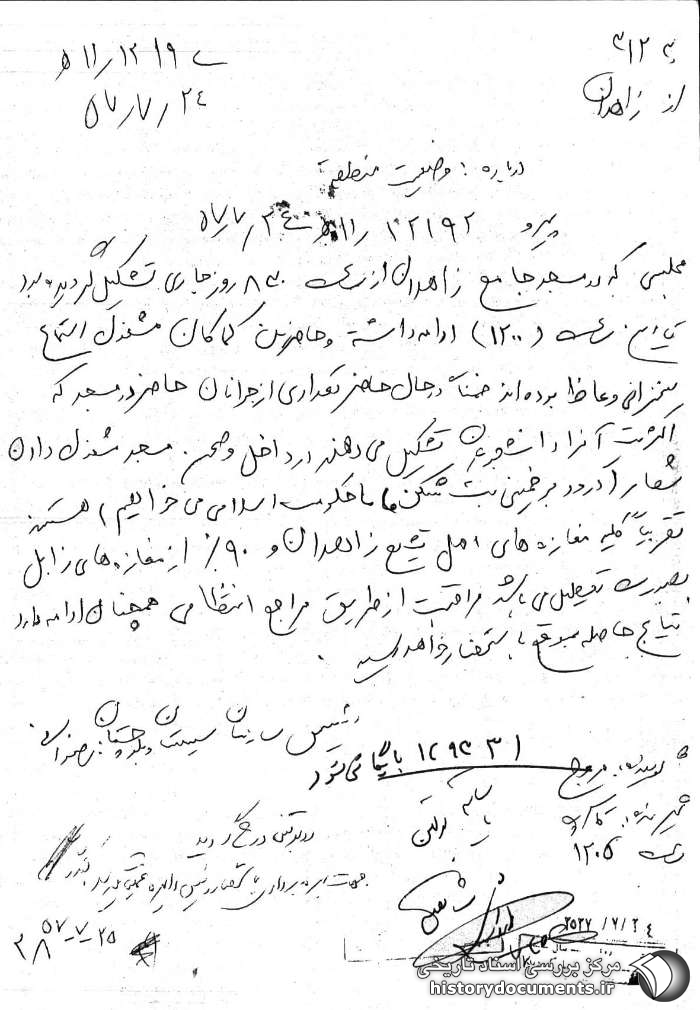 به ۳۱۲
از زاهدان
۱۲۱۹ / ۱۱ ه
۲۴ / ۷ / ۵۷
درباره : وضعیت منطقه
پیرو ۱۲۱۹۲ / ۱۱ ه ۲۴ / ۷ / ۵۷
مجلسی که در مسجد جامع زاهدان از ساعت ۸۳۰ روز جاری تشکیل گردیده بود
تا این ساعت (۱۲۰۰) ادامه داشته و حاضرین کماکان مشغول استماع
سخنرانی وعاظ بوده‌اند ضمناً در حال حاضر تعدادی از جوانان حاضر در مسجد که
اکثریت آنرا دانشجویان تشکیل می دهند در داخل و صحن مسجد مشغول دادن
شعار (درود بر خمینی بت شکن ما حکومت اسلامی می خواهیم) هستند
تقریباً کلیه مغازه های اهل تشیع زاهدان و ۹۰٪ از مغازه های زابل
بصورت تعطیل می باشد مراقبت از طریق مراجع انتظامی همچنان ادامه دارد
نتایج حاصله بموقع باستحضار خواهد رسید .
رئیس سازمان سیستان و بلوچستان
گوینده :
گیرنده :
ساعت ۱۲۰۵
در بولتن درج گردید
جهت بهره برداری
۲۵-۷-۵۷
۲۵۳۷ / ۷ / ۲۴
مرکز بررسی اسناد تاریخی
historydocuments.ir